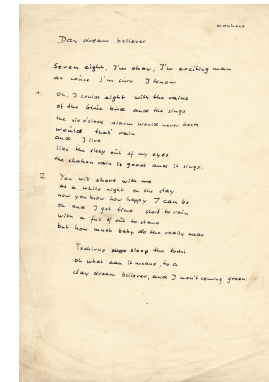 Day dream believer
Seven eight, I'm okay, I'm exciting man
as wise I'm sure I know
1. Oh, I could eight with the rains
of the blue bird and the sings
the six o'clock alarm would never been
would that rain
and I live
like the sleep out of my eyes
the shaken rain is good and it sings.
2 You will shout with me
as a white night on the stay
now you know how happy I can be
oh and I got time slot to rain
with a full of out to stand
but how much baby do the really mean
sleep the
oh what can it means, to a
day dream believer, and I won't coming green